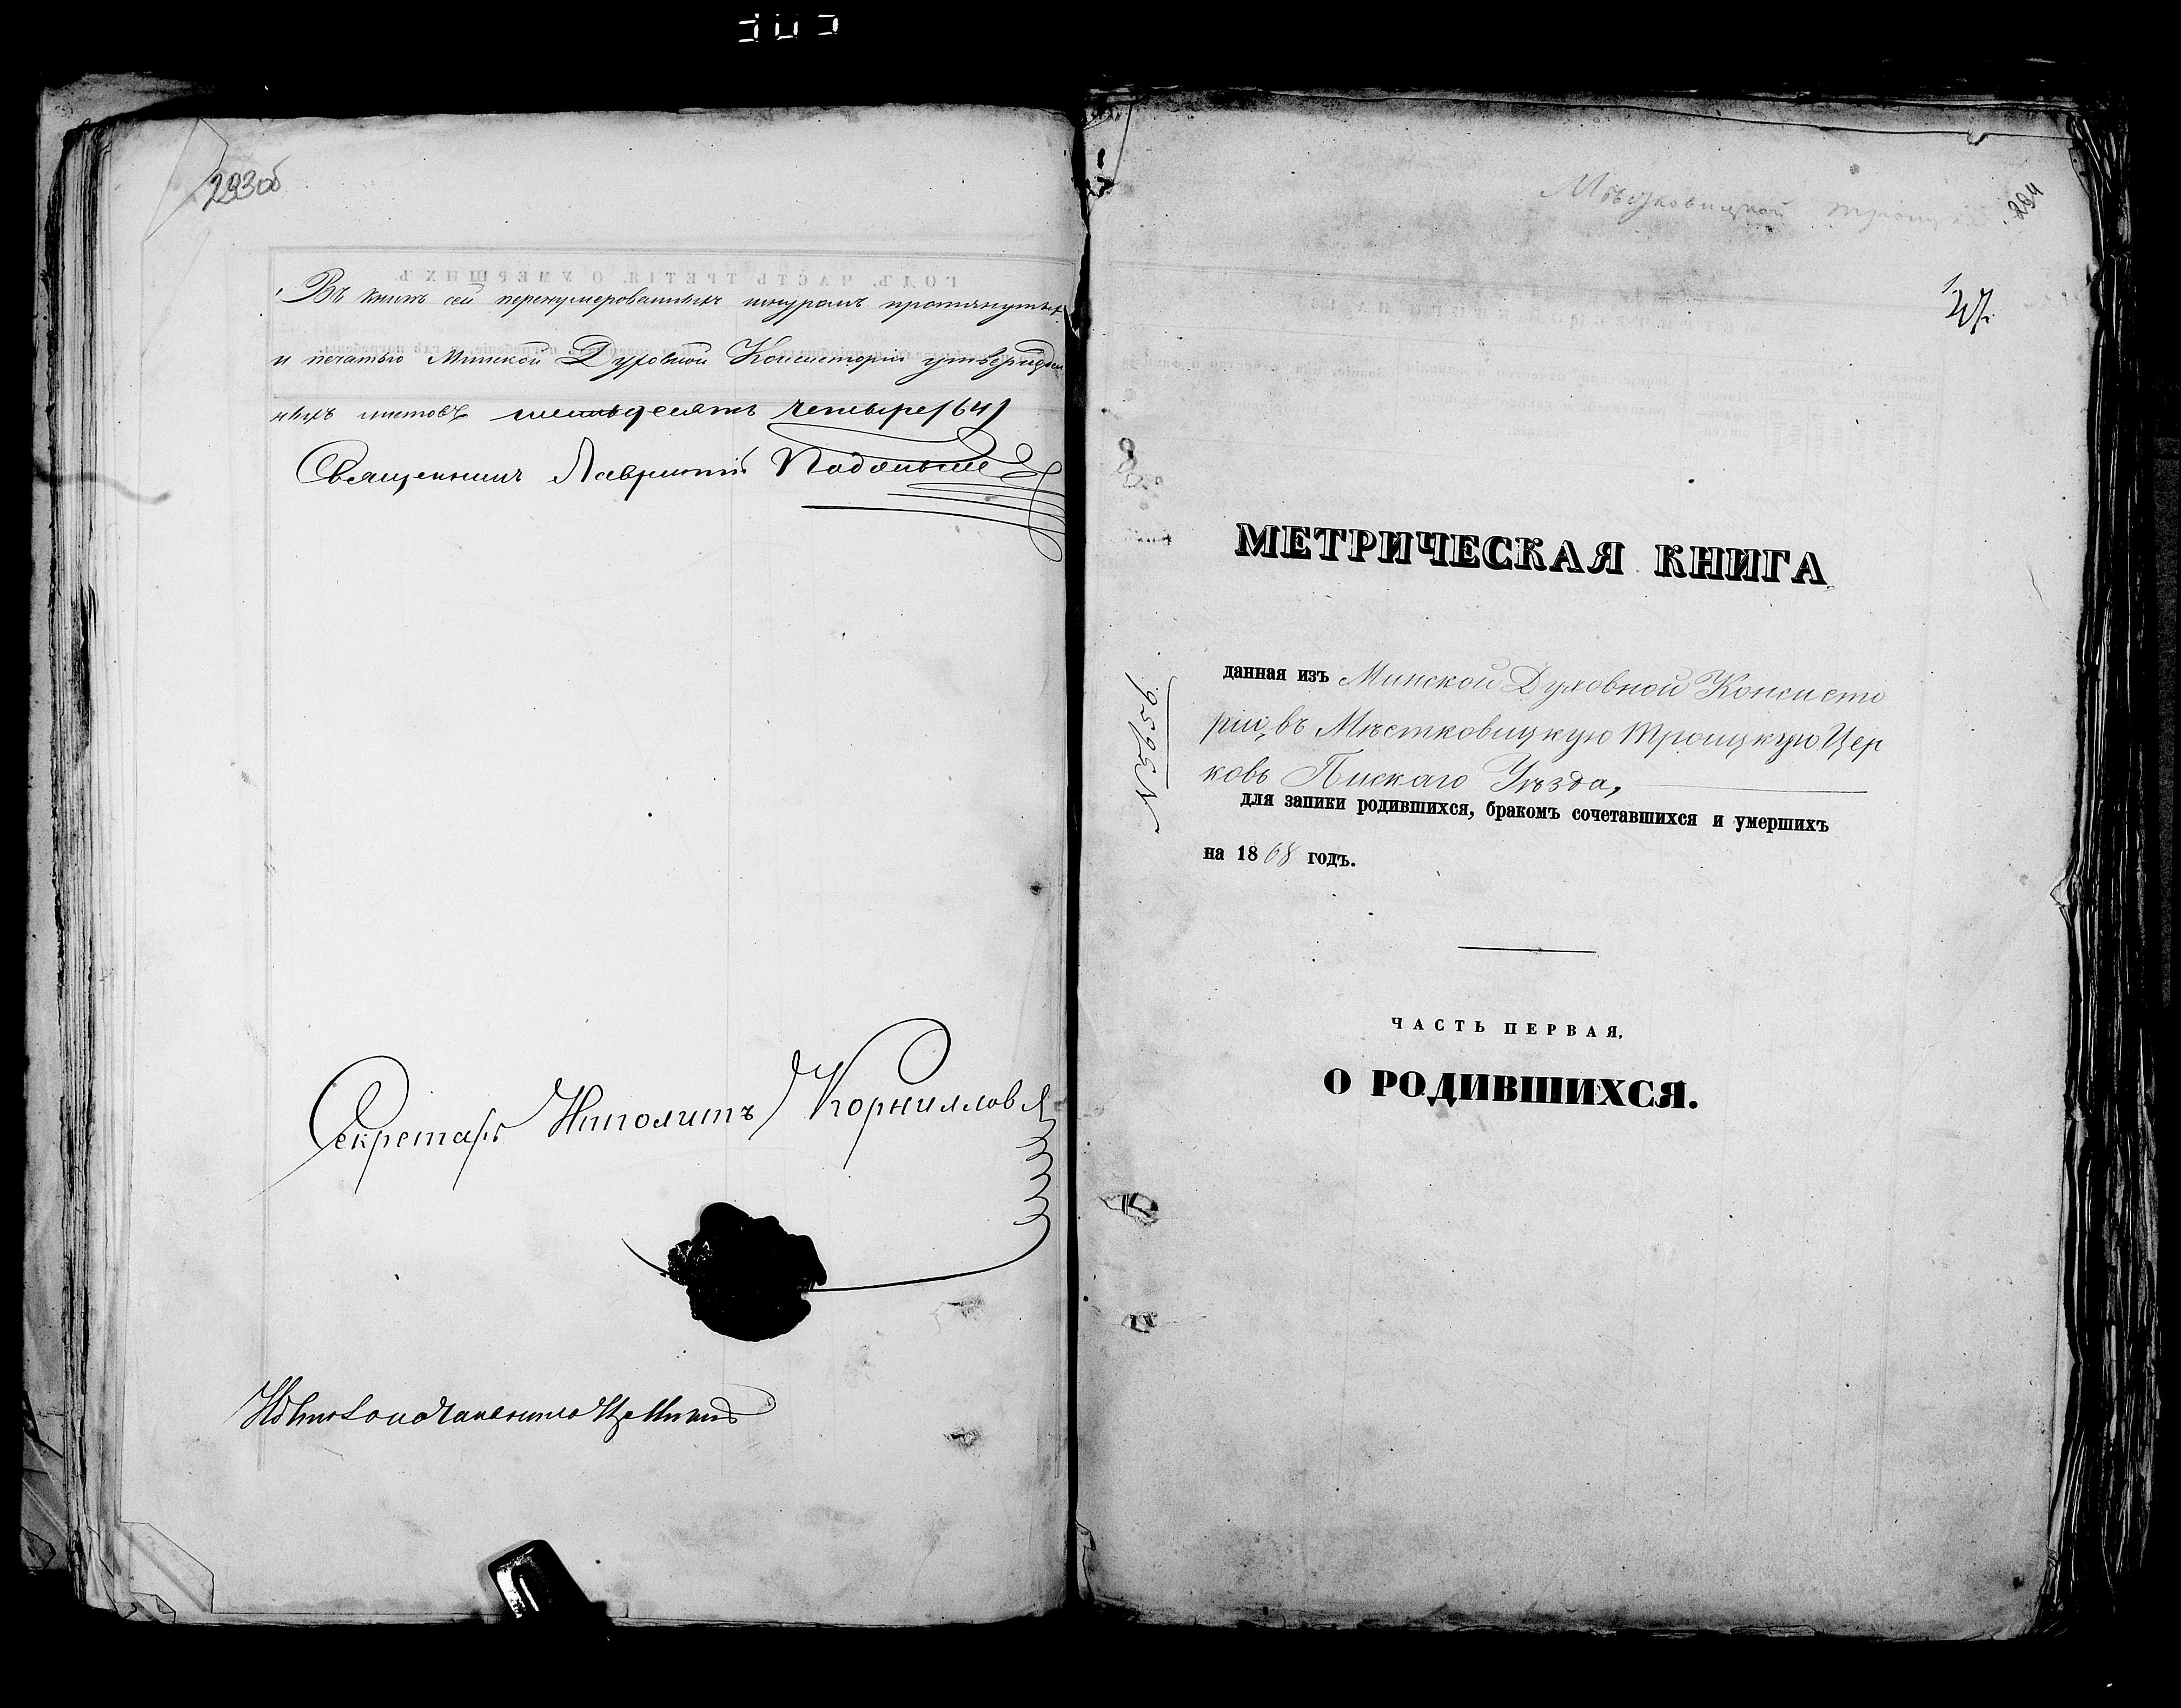 293об
Въ книгѣ сей перенумерованныхъ шнуромъ протянутыхъ
и печатью Минской Духовной Консисторіи утвержден
ныхъ листовъ шестьдесятъ четыре /64/
Священникъ Лаврентій
Секретарь Иполитъ Корниллов
294
МЕТРИЧЕСКАЯ КНИГА
данная изъ Минской Духовной Консисто
ріи, въ Мѣстковицкую Троицкую Цер
ковь Пнскаго Уѣзда,
для запики родившихся, бракомъ сочетавшихся и умершихъ
на 1868 годъ.
ЧАСТЬ ПЕРВАЯ,
О РОДИВШИХСЯ.